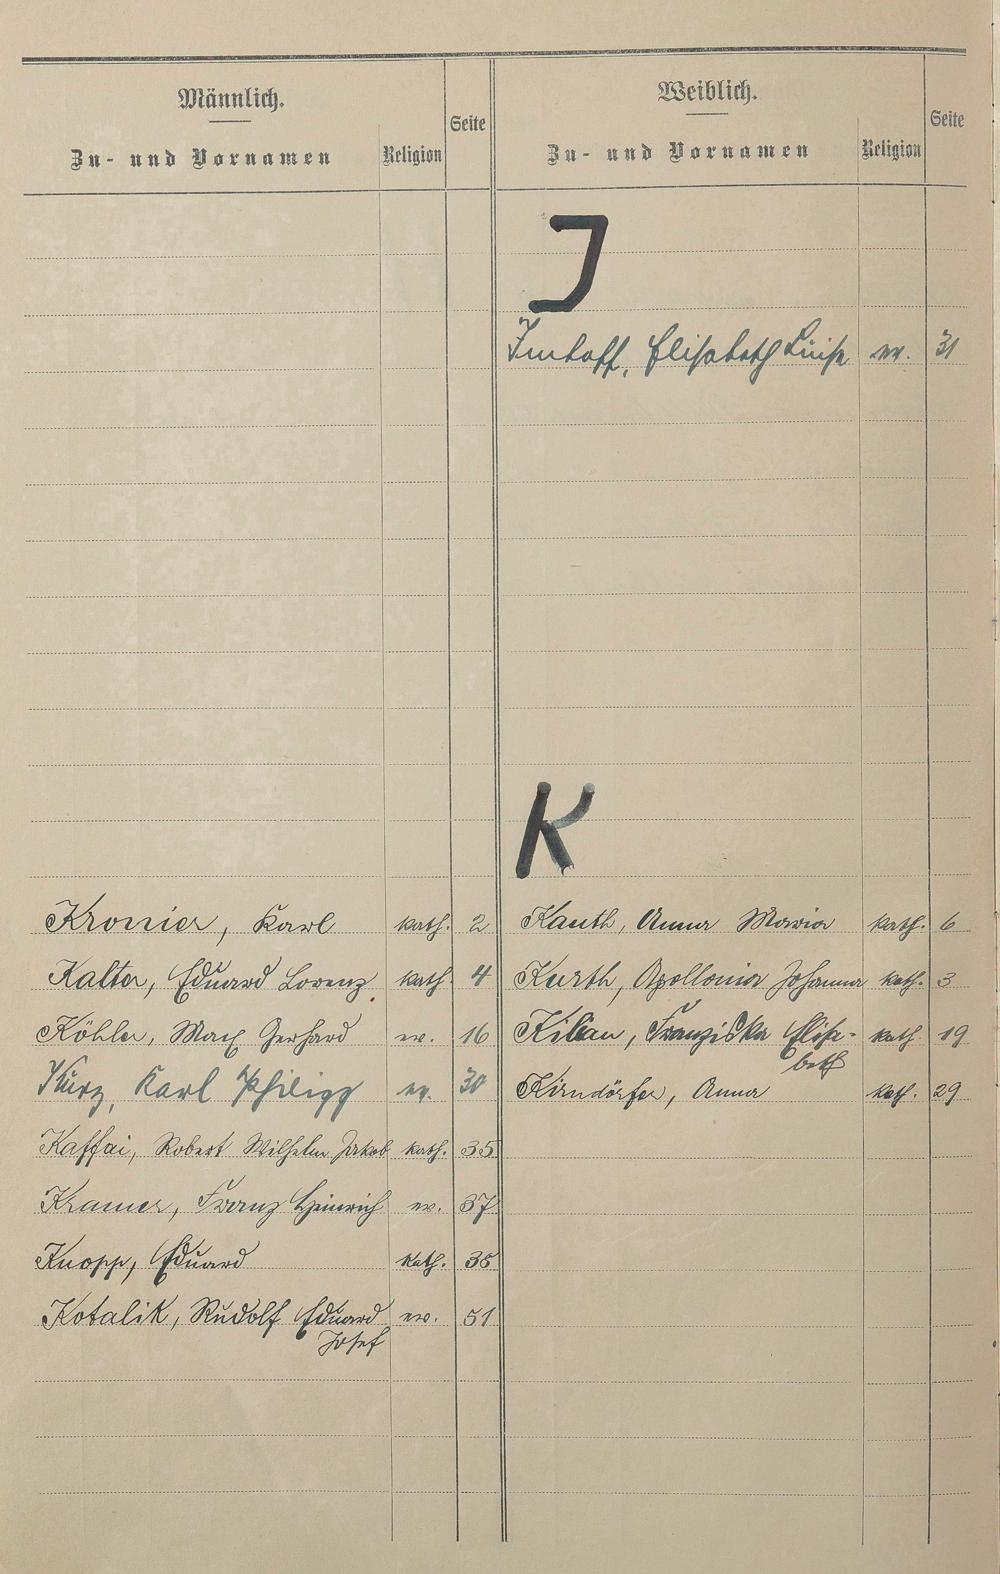 Männlich.
Zu- und Vornamen
Religion
Seite
Weiblich.
Zu- und Vornamen
Religion
Seite
J
Imhoff, Elisabeth Luise ev. 31
K
Kronier, Karl kath. 2
Kalter, Eduard Lorenz kath. 4
Köhler, Max Gerhard ev. 16
Kurz, Karl Philipp ev. 30
Kaffai, Robert Wilhelm Jakob kath. 35
Kramer, Franz Heinrich ev. 37
Knopp, Eduard kath. 38
Kotalik, Rudolf Eduard ev. 51
Josef
Kauth, Anna Maria kath. 6
Kurth, Apollonia Johanna kath. 3
Kilian, Franziska Elisa- kath 19
beth
Kirndörfer, Anna kath. 29